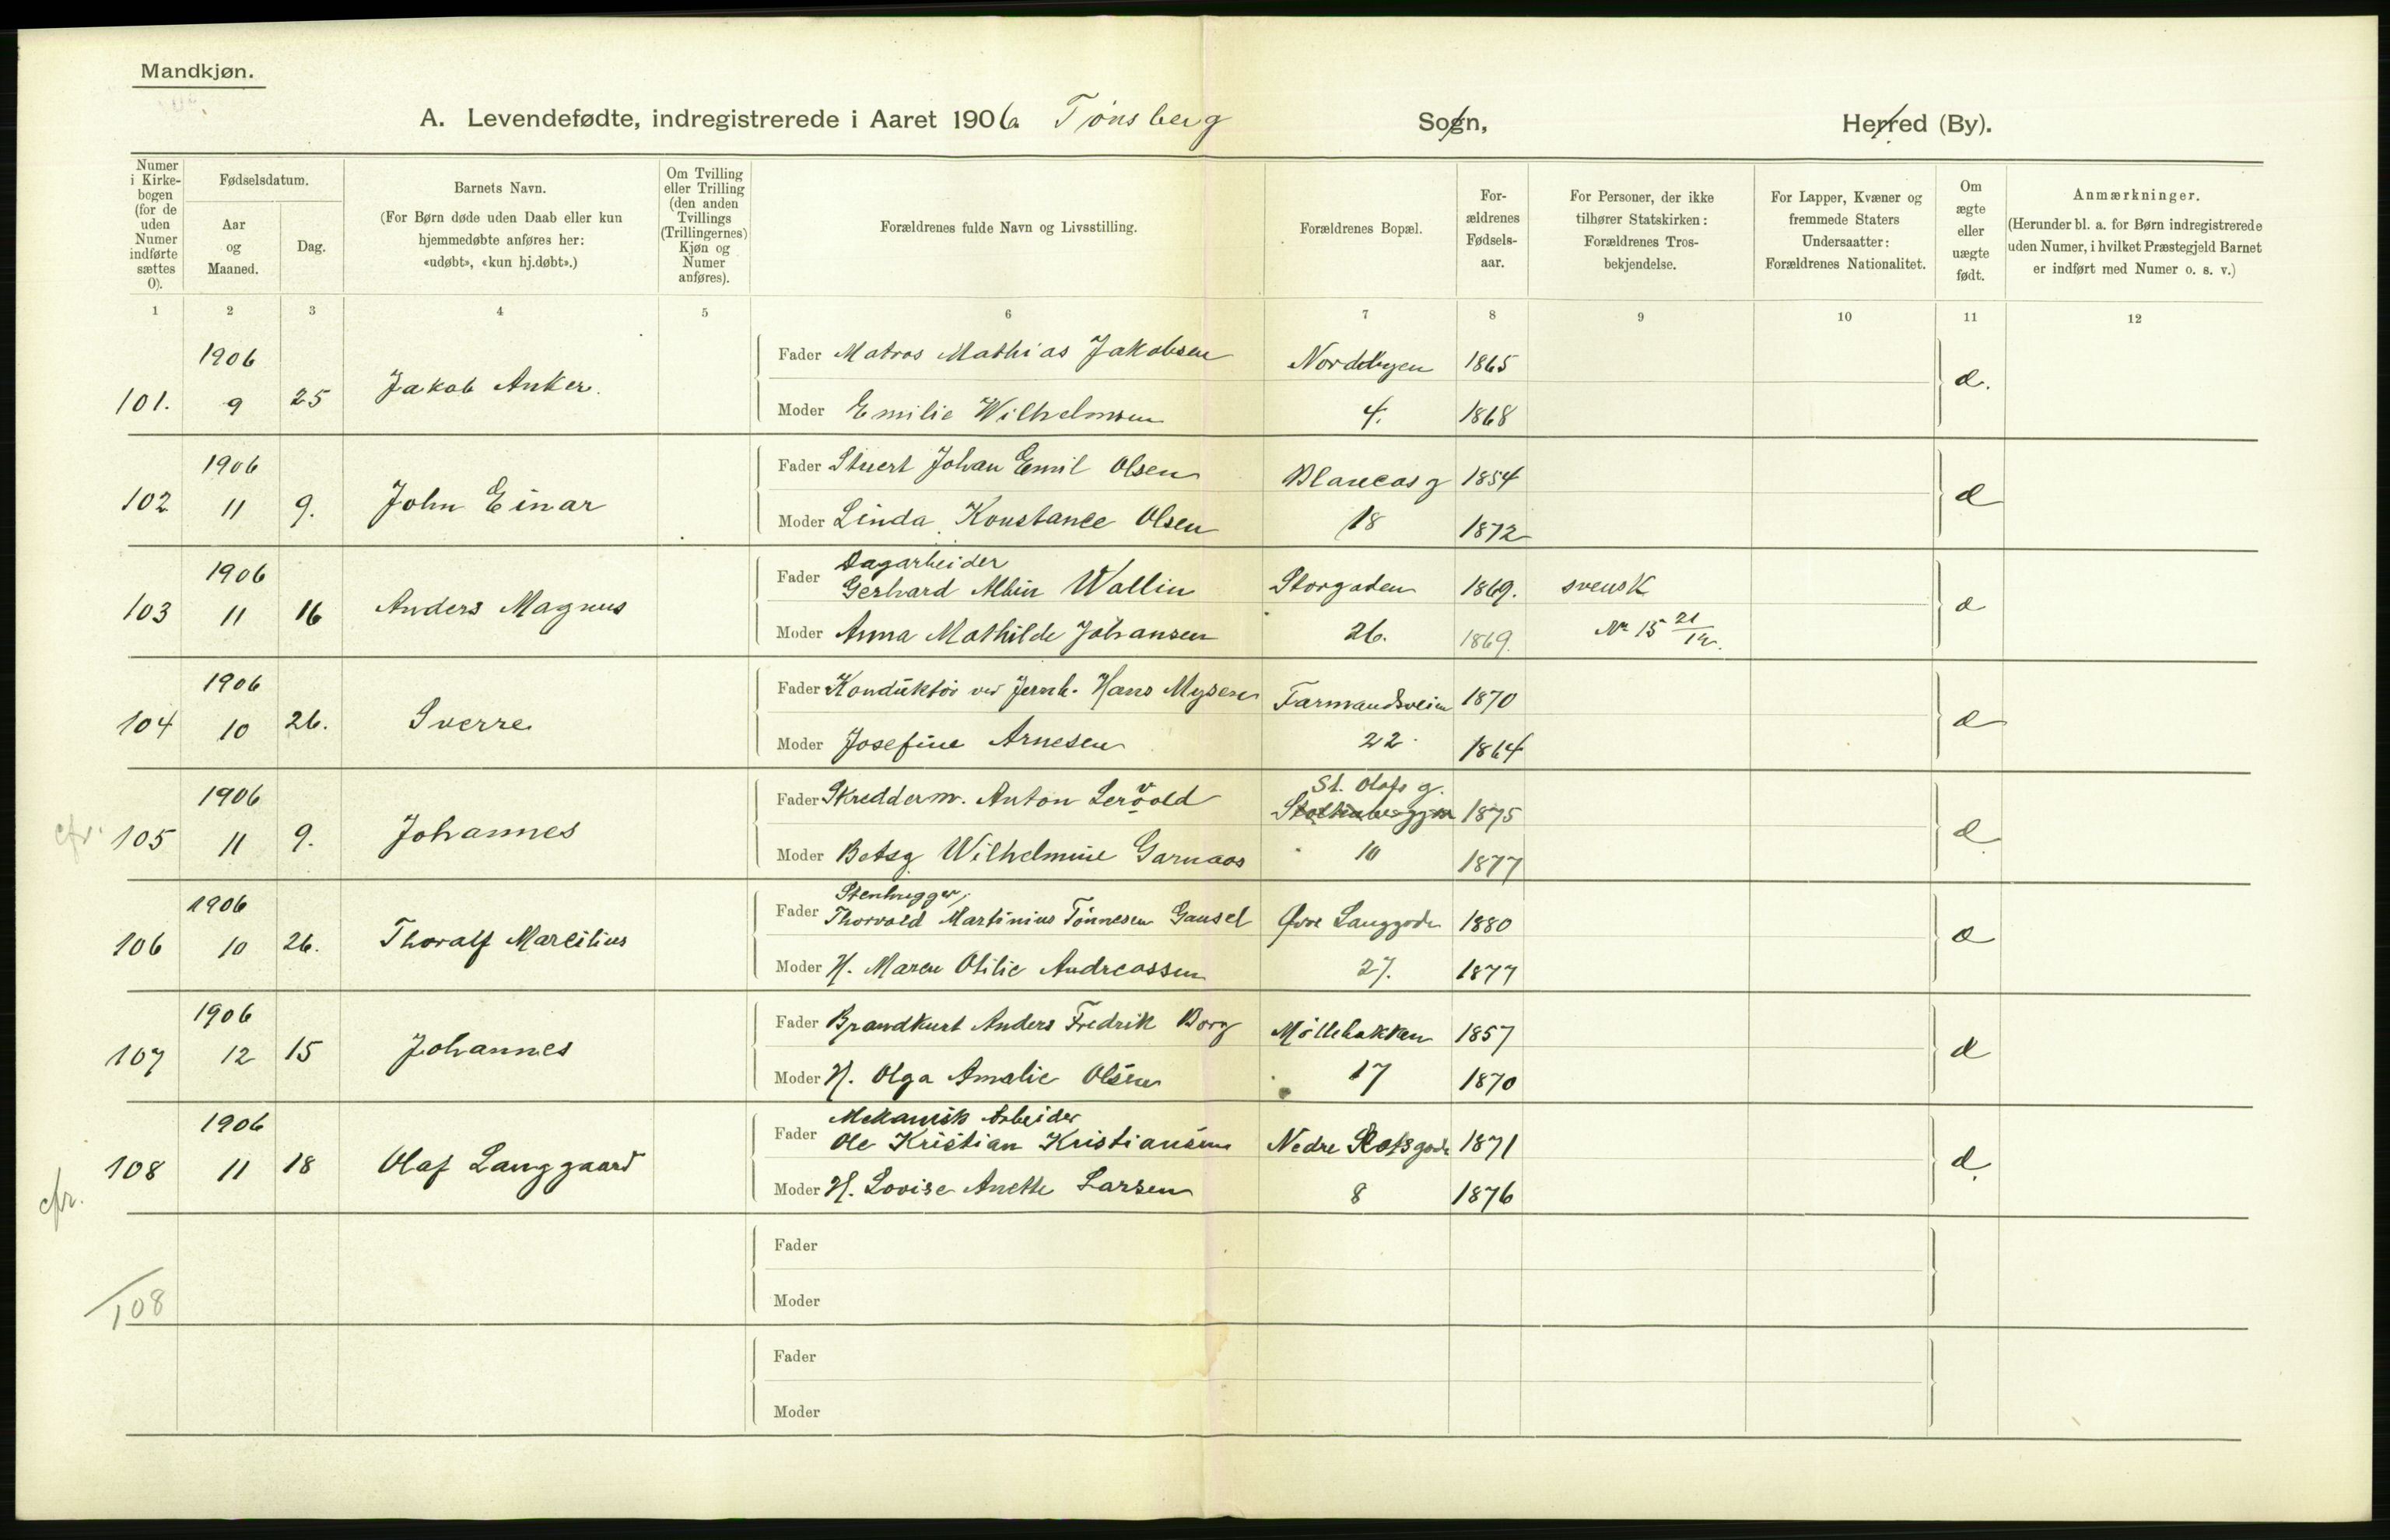 Mandkjøn.
A. Levendefødte, indregistrerede i Aaret 1906 Tønsberg Sogn, Herred (By).
Numer i Kirkebogen (for de uden Numer indførte sættes 0).
Fødselsdatum.
Aar og Maaned.
Dag.
Barnets Navn.
(For Børn døde uden Daab eller kun hjemmedøbte anføres her: «udøbt», «kun hj.døbt».)
Om Tvilling eller Trilling (den anden Tvillings (Trillingernes) Kjøn og Numer anføres).
Forældrenes fulde Navn og Livsstilling.
Forældrenes Bopæl.
Forældrenes Fødselsaar.
For Personer, der ikke tilhører Statskirken: Forældrenes Trosbekjendelse.
For Lapper, Kvæner og fremmede Staters Undersaatter: Forældrenes Nationalitet.
Om ægte eller uægte født.
Anmærkninger.
(Herunder bl. a. for Børn indregistrerede uden Numer, i hvilket Præstegjeld Barnet er indført med Numer o. s. v.)
1 2 3 4 5 6 7 8 9 10 11 12
1906 Fader Matros Mathias Jakobsen Nordbyen 1865
101. 9 25 Jakob Anker.
Moder Emilie Wilhelmsen 4. 1868
1906 Fader Stuert Johan Emil Olsen 1854
102 11 9. John Einar
Moder Linda Konstance Olsen 18 1872
1906 Fader Dagarbeider
Gerhard Albin Wallin Storgaden 1869. svensk
103 11 16 Anders Magnus
Moder Anna Mathilde Johansen 26. 1869. No 15 21/12.
1906 Fader Konduktør ved Jernb. Hans Mysen Farmandsveien 1870
104 10 26. Sverre
Moder Josefine Arnesen 22 1864
1906 Fader Skredderm. Anton Lervold St. Olafs g. 1875
cfr. 105 11 9. Johannes
Moder Betsy Wilhelmine Garnaas 10 1877
1906 Fader Stenhugger,
Thorvald Martinius Tønnesen Gausel Øvre Langgade 1880
106 10 26. Thoralf Marcilius
Moder H. Maren Otilie Andreassen 27. 1877
1906 Fader Brandkust Anders Fredrik Borg Møllebakken 1857
107 12 15 Johannes
Moder H. Olga Amalie Olsen 17 1870
1906 Fader Mekanisk Arbeider
Ole Kristian Kristiansen Nedre Slotsgade 1871
108 11 18 Olaf Langgaard
cfr. Moder H. Lovise Anette Larsen 8 1876
Fader
108 Moder
Fader
Moder